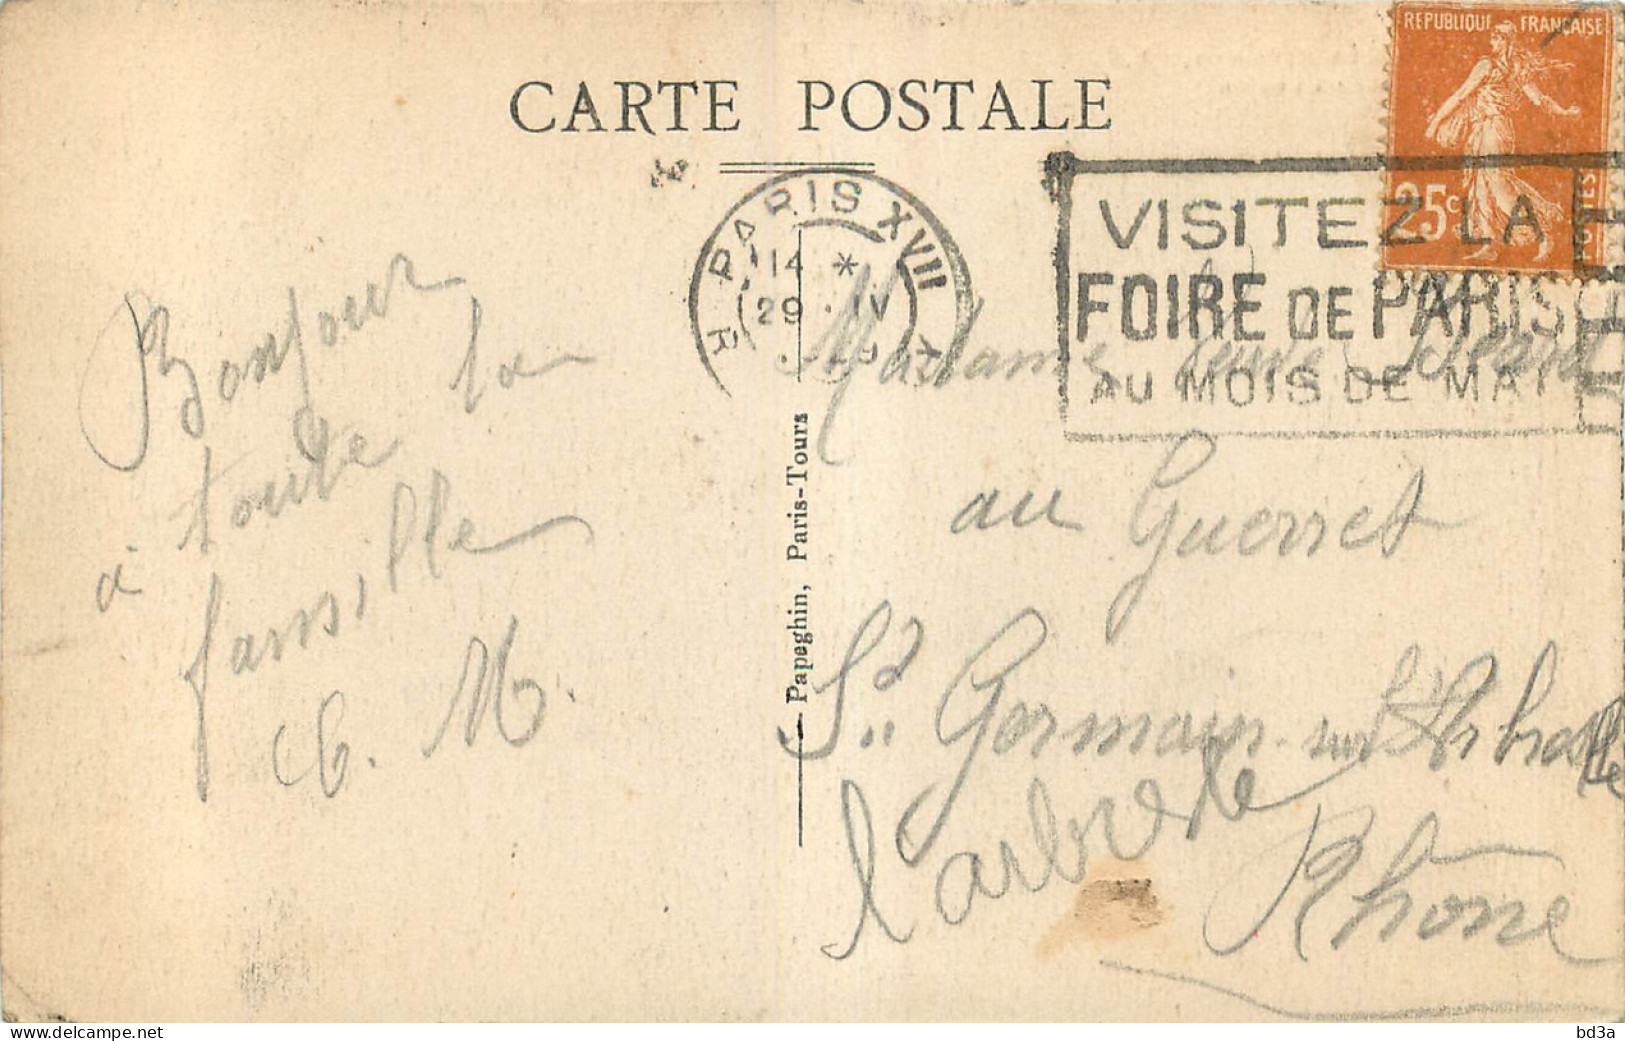 CARTE POSTALE
REPUBLIQUE FRANÇAISE
25c
POSTES
R. PARIS XVIII
14 *
29 · IV
VISITEZ LA
FOIRE DE PARIS
AU MOIS DE MAI
Bonjour
à toute la
famille
M.
Papeghin, Paris-Tours
Madame
au Guerret
St Germain sur l'Arbresle
l'arbresle
Rhône
bd3a